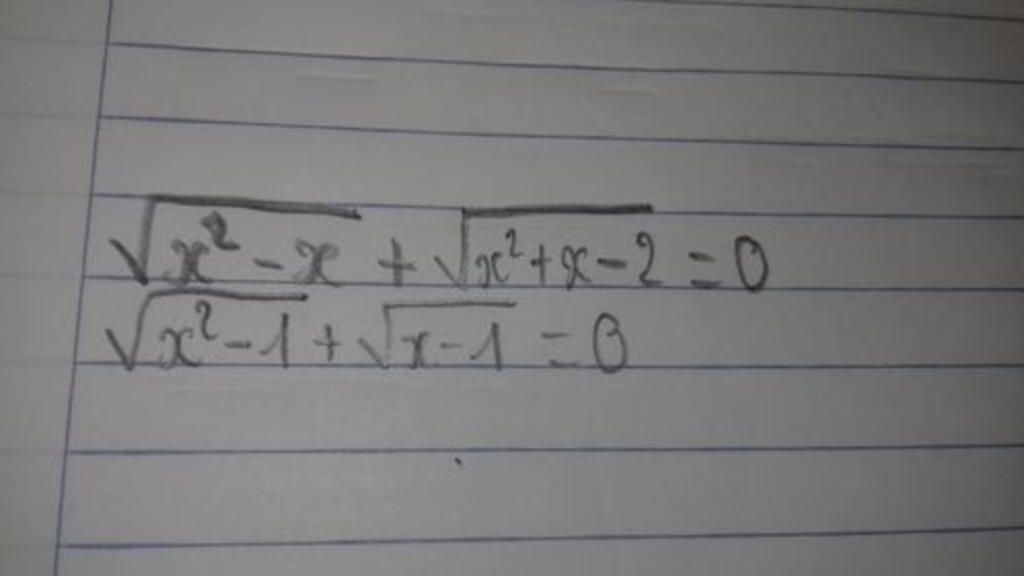 √(x²-x) + √(x²+x-2) = 0
√(x²-1) + √(x-1) = 0